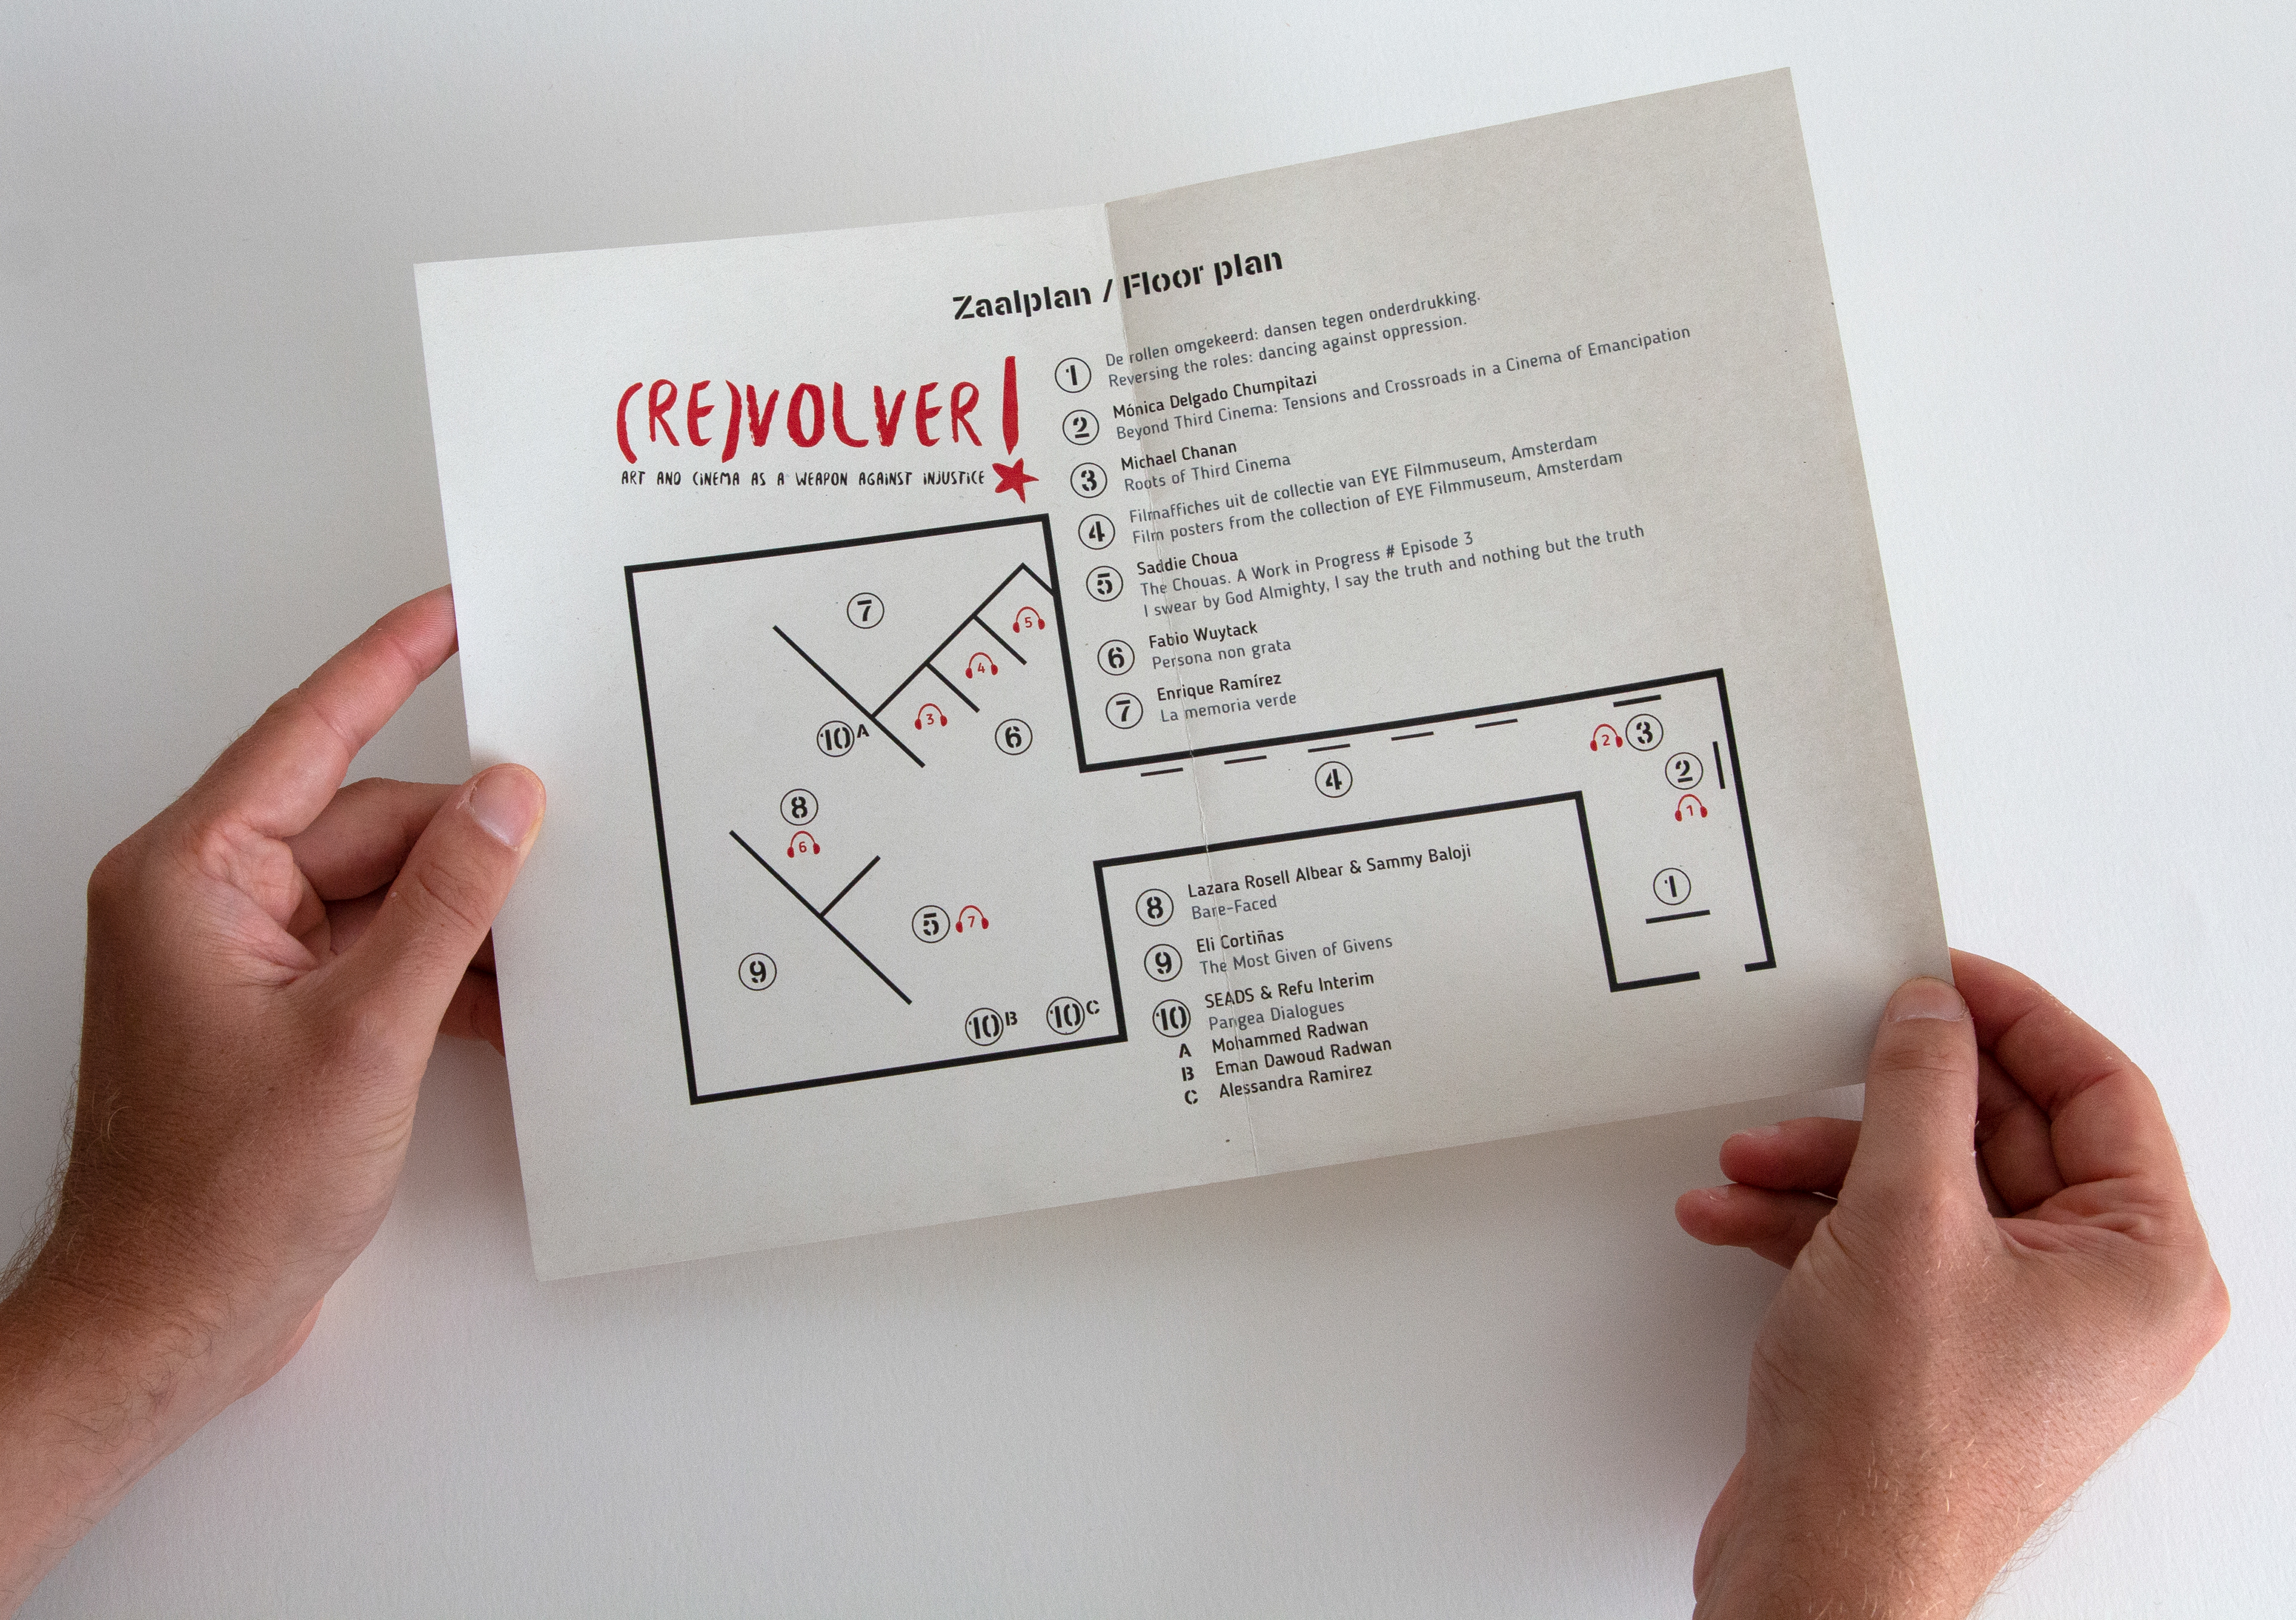 Zaalplan / Floor plan
(RE)VOLVER!
ART AND CINEMA AS A WEAPON AGAINST INJUSTICE
1 De rollen omgekeerd: dansen tegen onderdrukking.
Reversing the roles: dancing against oppression.
2 Mónica Delgado Chumpitazi
Beyond Third Cinema: Tensions and Crossroads in a Cinema of Emancipation
3 Michael Chanan
Roots of Third Cinema
4 Filmaffiches uit de collectie van EYE Filmmuseum, Amsterdam
Film posters from the collection of EYE Filmmuseum, Amsterdam
5 Saddie Choua
The Chouas. A Work in Progress # Episode 3
I swear by God Almighty, I say the truth and nothing but the truth
6 Fabio Wuytack
Persona non grata
7 Enrique Ramírez
La memoria verde
7
5
4
3
10 A
6
8
6
5 7
9
10 B
10 C
4
2 3
2
1
1
8 Lazara Rosell Albear & Sammy Baloji
Bare-Faced
9 Eli Cortiñas
The Most Given of Givens
10 SEADS & Refu Interim
Pangea Dialogues
A Mohammed Radwan
B Eman Dawoud Radwan
C Alessandra Ramirez